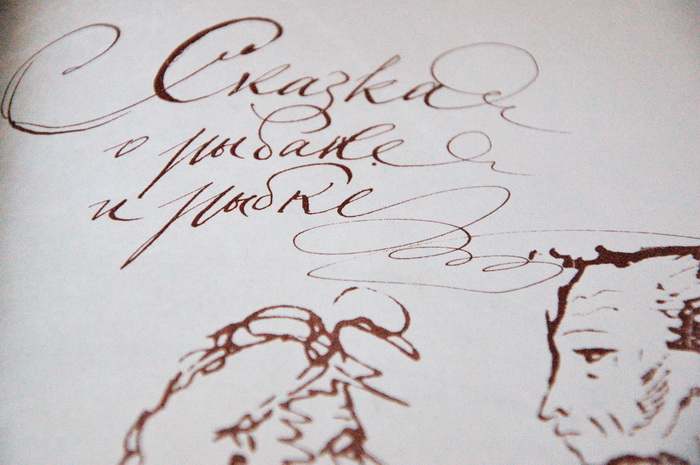 Сказка
о рыбаке
и рыбке